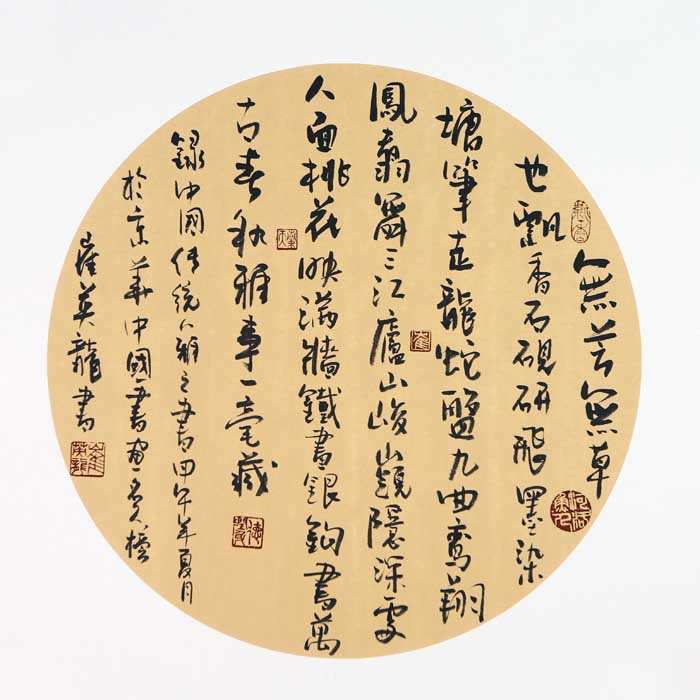 無花無草
也飄香石硯研飛墨染
塘筆走龍蛇盤九曲鸞翔
鳳翥舞三江廬山峻嶺隱深處
人面桃花映滿牆鐵畫銀鉤書萬
古春秋雅事一毫藏
錄中國傳統八雅之書甲午年夏月
於京華中國書畫
崔英龍書